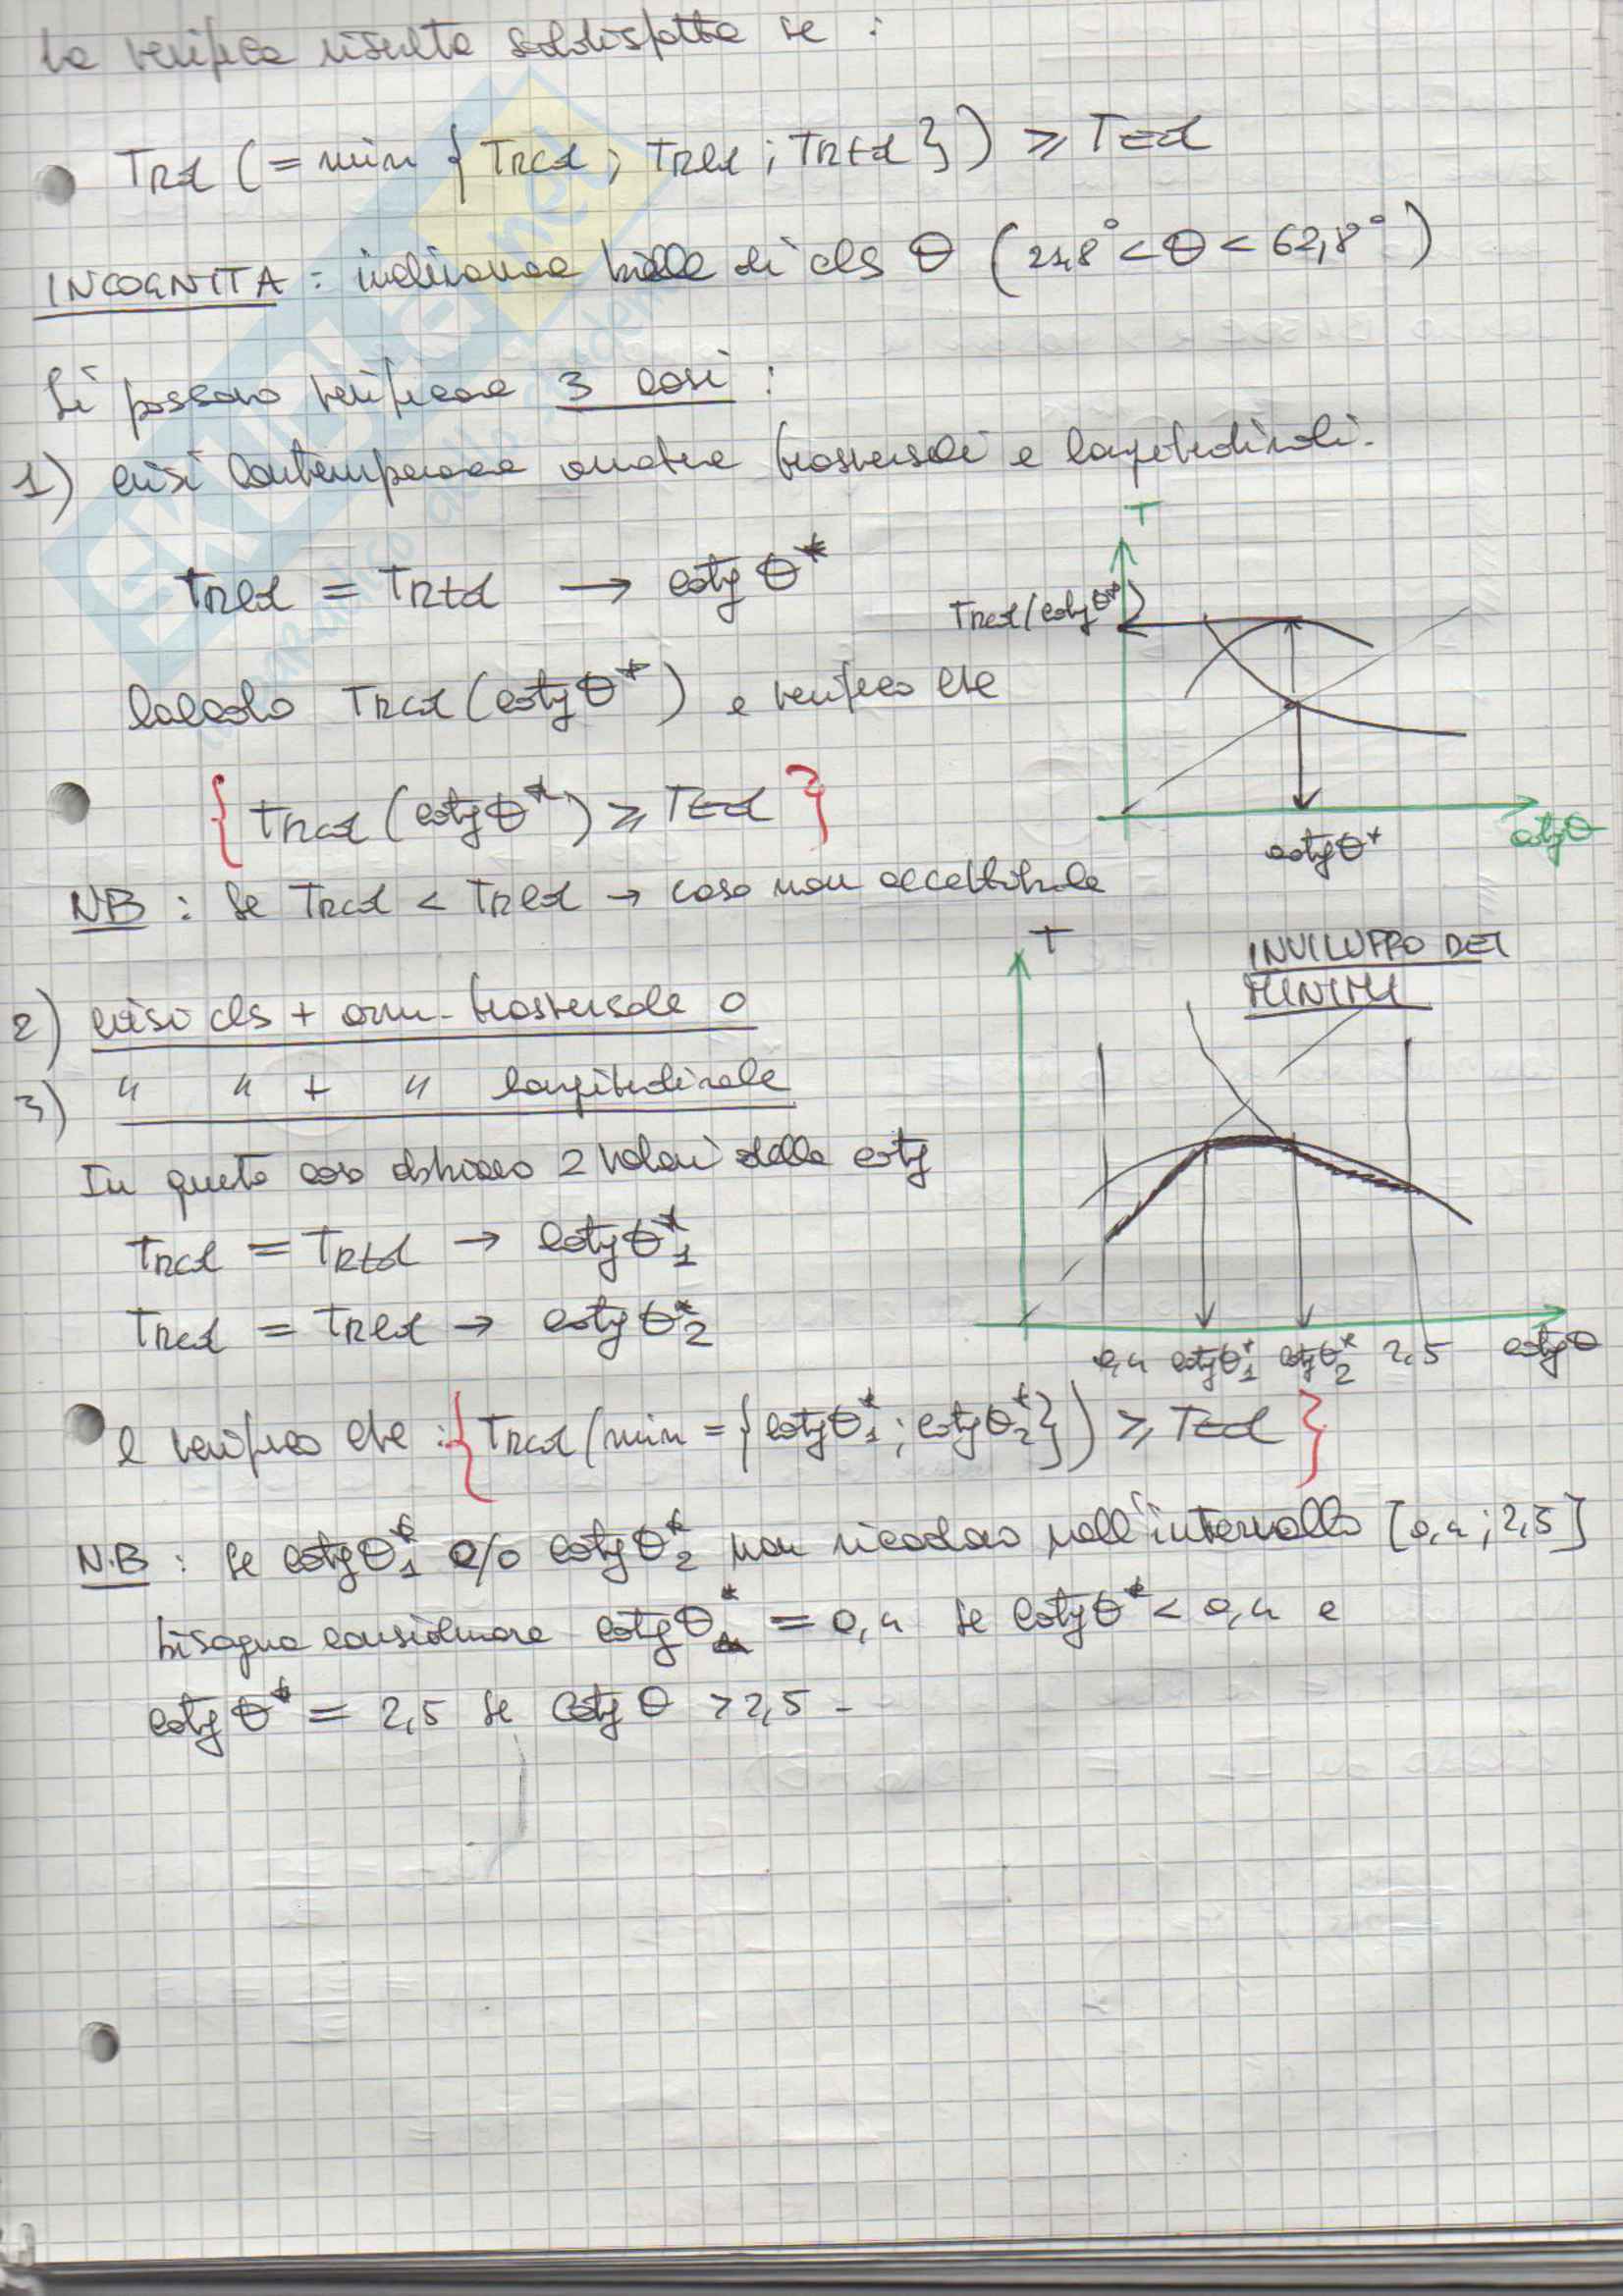 La verifica risulta soddisfatta se :
TRd (= min { TRcd ; TRld ; TRtd } ) ≥ TEd
INCOGNITA : inclinazione bielle di cls θ ( 21,8° < θ < 62,8° )
Si possono verificare 3 casi :
1) crisi contemporanea armature trasversali e longitudinali.
TRld = TRtd → cotg θ*
T
TRcd (cotg θ*)
calcolo TRcd (cotg θ*) e verifico che
{ TRcd (cotg θ*) ≥ TEd }
cotg θ*
cotg θ
NB : Se TRcd < TRld → caso non accettabile
T
INVILUPPO DEI
MINIMI
2) crisi cls + arm. trasversale o
3) " " + " longitudinale
In questo caso abbiamo 2 valori della cotg
TRcd = TRtd → cotg θ*1
TRcd = TRld → cotg θ*2
0,4 cotg θ*1 cotg θ*2 2,5 cotg θ
e verifico che : { TRcd (min = { cotg θ*1 ; cotg θ*2 } ) ≥ TEd }
N.B : se cotg θ*1 e/o cotg θ*2 non ricadano nell'intervallo [0,4 ; 2,5]
bisogna considerare cotg θ* = 0,4 se cotg θ* < 0,4 e
cotg θ* = 2,5 se cotg θ > 2,5 -